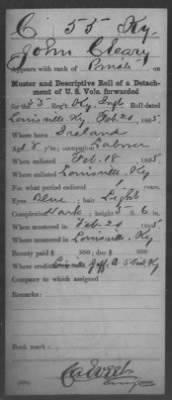 C 55 Ky.
John Cleary
Appears with rank of Private on
Muster and Descriptive Roll of a Detach-
ment of U. S. Vols. forwarded
for the 55 Reg't Ky. Infy. Roll dated
Louisville Ky Feb 20, 1865.
Where born Ireland
Age y'rs; occupation Laborer
When enlisted Feb. 18, 1865
Where enlisted Louisville, Ky
For what period enlisted 1 years.
Eyes Blue; hair Light
Complexion Dark; height 5 ft. 6 in.
When mustered in Feb. 20, 1865
Where mustered in Louisville, Ky
Bounty paid $ 100; due $ 100
Where credited Louisville Jeff. Co 5 Dist Ky
Company to which assigned
Remarks:
Book mark:
Copyist.